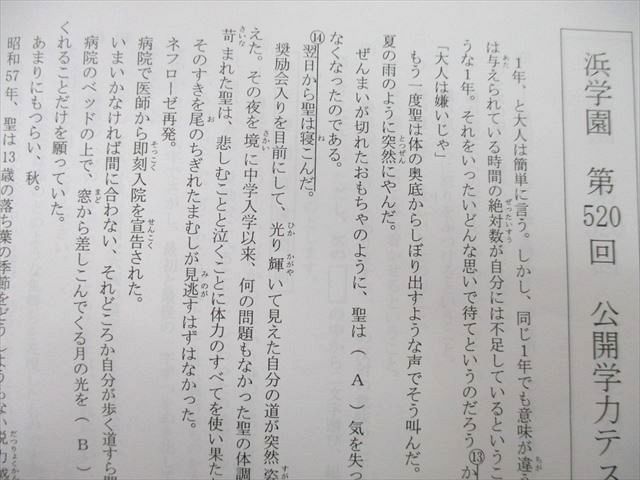 浜学園　第520回　公開学力テス
1年、と大人は簡単に言う。しかし、同じ1年でも意味が違う
は与えられている時間の絶対数が自分には不足しているというこ
うな1年。それをいったいどんな思いで待てというのだろう⑬か
「大人は嫌いじゃ」
もう一度聖は体の奥底からしぼり出すような声でそう叫んだ。
夏の雨のように突然にやんだ。
ぜんまいが切れたおもちゃのように、聖は（　A　）気を失っ
なくなったのである。
⑭翌日から聖は寝こんだ。
奨励会入りを目前にして、光り輝いて見えた自分の道が突然
えた。その夜を境に中学入学以来、何の問題もなかった聖の体調
まれた聖は、悲しむことと泣くことに体力のすべてを使い果た
そのすきを尾のちぎれたまむしが見逃すはずはなかった。
ネフローゼ再発。
病院で医師から即刻入院を宣告された。
いまいかなければ間に合わない、それどころか自分が歩く道すら
病院のベッドの上で、窓から差しこんでくる月の光を（　B　）
くれることだけを願っていた。
あまりにもつらい、秋。
昭和57年、聖は13歳の落ち葉の季節をどうしようもない脱力感